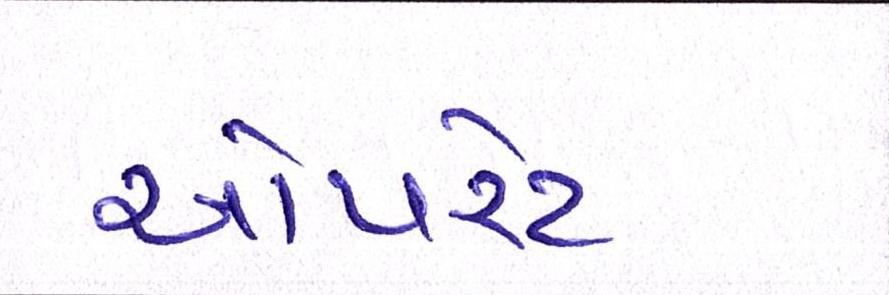 ઓપરેટ